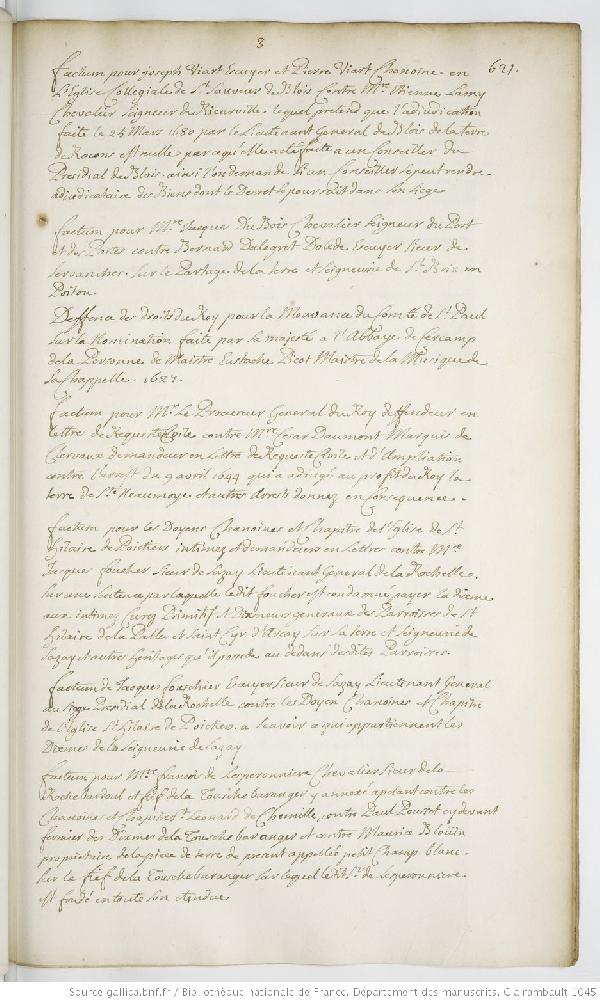 8
621.
factum pour joseph Viart Escuyer et Pierre Viart Chanoine en
l'Eglise Collegiale de St. Sauveur de Blois Contre Mre. Estienne Lamy
Chevalier Seigneur de lequel pretend que l'adjudication
faite le 24 Mars 1630 par le Lieutenant General de Blois de la Terre
de Racons est nulle parcequ'elle a été faite a un Conseiller du
Presidial de Blois. ainsi l'on demande si un Conseiller se peut rendre
adjudicataire des Biens dont le Decret se poursuit dans son siege
factum pour Mre. Jacques Du Bois Chevalier Seigneur du Port
et des Portes contre Bernard Dalegret Escuyer sieur de
Servancher. sur le Partage de la terre et seigneurie de St. Brix en
Poitou.
Deffence des droits du Roy pour la Mouvance du Comté de St. Paul
sur la Nomination faite par sa majesté a l'Abbaye de fercamp
de la Personne de Maistre Eustache Picot Maistre de la Musique de
sa Chappelle. 1627.
factum pour Mr. Le Procureur General du Roy deffendeur en
lettre de Requeste Civile contre Mre. Cesar Daumont Marquis de
Clervaux demandeur en Lettre de Requeste Civile et d'Ampliation
contre l'arrest du 9 avril 1644 qui a adjugé au profit du Roy la
terre de Ste. Neaumoye et autres Arrests donnez en Consequence.
factum pour les Doyens Chanoines et Chapitre de l'Eglise de St.
hilaire de Poictiers intimez et demandeurs en Lettres contre Mre.
Jacques foucher Sieur de Sazay Lieutenant General de la Rochelle.
sur une Sentence par laquelle ledit foucher est condamné payer la dixme
aux intimez Curez Primitifs et Dixmeurs generaux des Parroisses de St.
hilaire de la Pallu et Saint Cyr d'Arcay sur sa terre et Seigneurie de
Sazay et autres heritages qu'il possede au dedans desdites Parroisses.
factum de Jacques foeschier Escuyer Sieur de Sazay Lieutenant General
au siege Presidial de la Rochelle contre les Doyen Chanoines et Chapitre
de l'Eglise St. hilaire de Poictiers a scavoir a qui appartiennent les
Dixmes de la seigneurie de Sazay
factum pour Mre. francois de Lesperonniere Chevalier Sieur de la
Rochebardoul et fief de la Tousche baranger y annexé apelant contre les
Chanoines et Chapitre St. Leonard de Chemille, contre Paul Pouset cydevant
fermier des Dixmes de la Tousche baranger et contre Maurice Blouin
proprietaire de la piece de terre de present appellée petit Champ blanc.
sur le fief de la Tousche baranger sur lequel ledit Sr. de Lesperonniere
est fondé en toute son etendue.
Source gallica.bnf.fr / Bibliothèque nationale de France. Département des manuscrits. Clairambault 1045